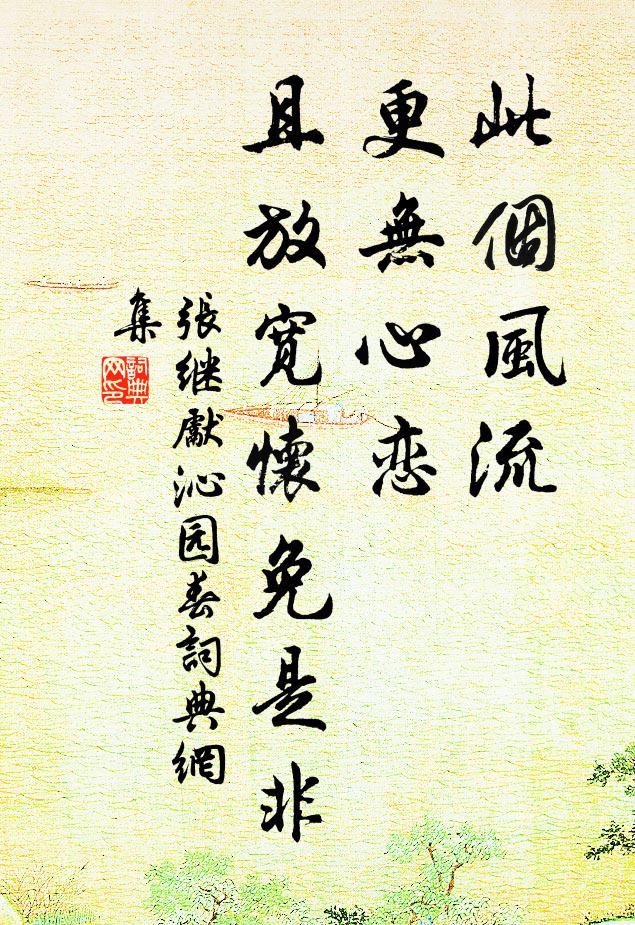 此個風流
更無心恋
且放寬懷免是非
張继獻沁园春詞典網
集
詞典
网印